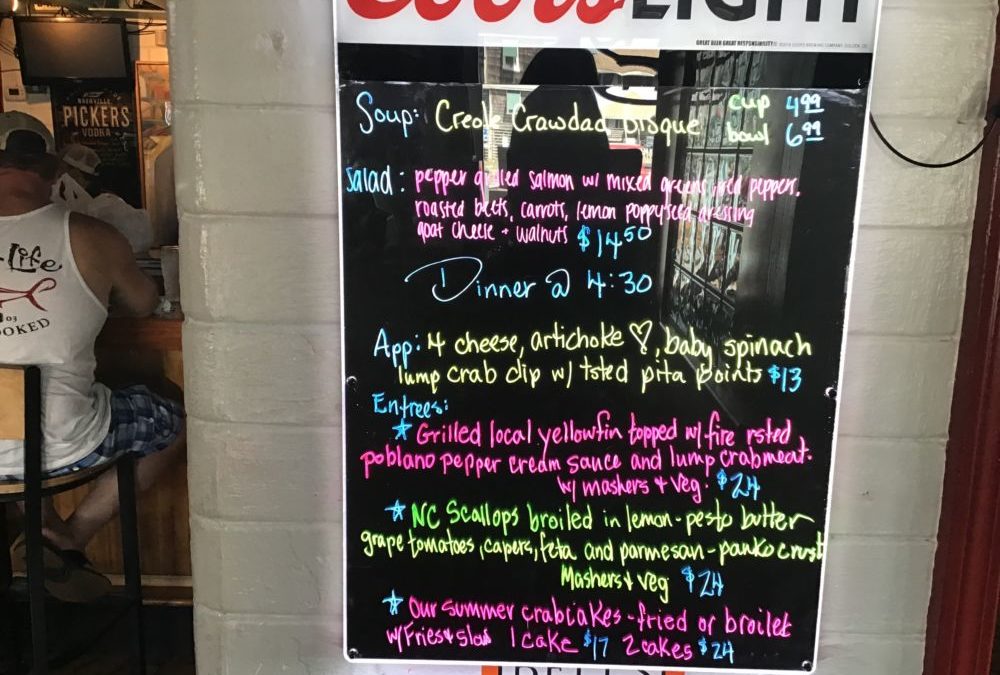 Coors LIGHT
GREAT BEER GREAT RESPONSIBILITY
NASHVILLE
PICKERS
VODKA
Soup: Creole Crawdad Bisque cup 4.99
bowl 6.99
Salad: pepper grilled salmon w/ mixed greens, red peppers.
roasted beets, carrots, lemon poppyseed dressing
goat cheese + walnuts $14.50
Dinner @ 4:30
App: 4 cheese, artichoke ♡, baby spinach
lump crab dip w/ tsted pita points $13
Entrees:
☆ Grilled local yellowfin topped w/ fire rsted
poblano pepper cream sauce and lump crabmeat.
w/ mashers + veg. $24
☆ NC Scallops broiled in lemon-pesto butter
grape tomatoes, capers, feta and parmesan-panko crust
Mashers + veg $24
☆ Our summer crabcakes - fried or broiled
w/ Fries + slaw 1 cake $17 2 cakes $24
Life
03
OOKED